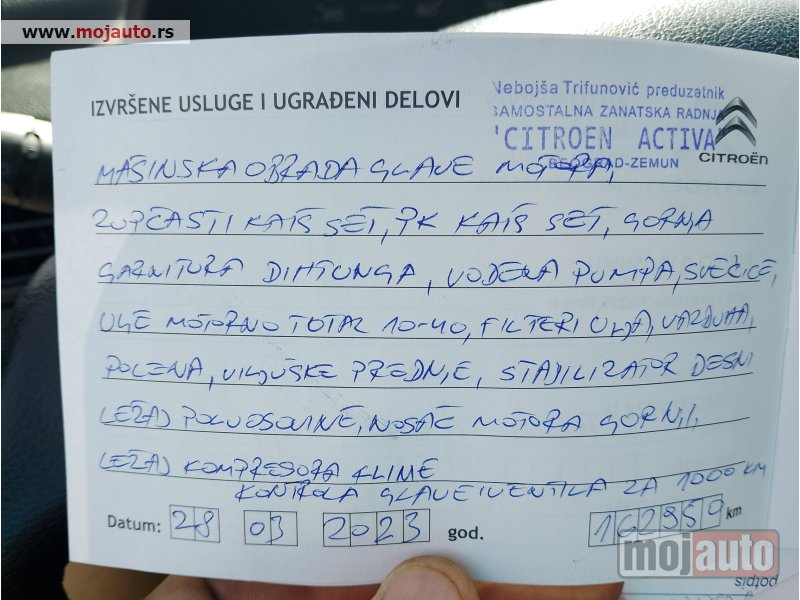 www.mojauto.rs
Nebojša Trifunović preduzetnik
SAMOSTALNA ZANATSKA RADNJA
"CITROEN ACTIVA"
BEOGRAD-ZEMUN
CITROËN
IZVRŠENE USLUGE I UGRAĐENI DELOVI
MAŠINSKA OBRADA GLAVE MOTORA,
ZUPČASTI KAIŠ SET, PK KAIŠ SET, GORNJA
GARNITURA DIHTUNGA, VODENA PUMPA, SVEĆICE,
ULJE MOTORNO TOTAL 10-40, FILTERI ULJA, VAZDUHA,
POLENA, VILJUŠKE PREDNJE, STABILIZATOR DESNI
LEŽAJ POLUOSOVINE, NOSAČ MOTORA GORNJI,
LEŽAJ KOMPRESORA KLIME
KONTROLA GLAVE I VENTILA ZA 1000 KM
Datum: 28 03 2023 god. 162959 km
mojauto
potpis